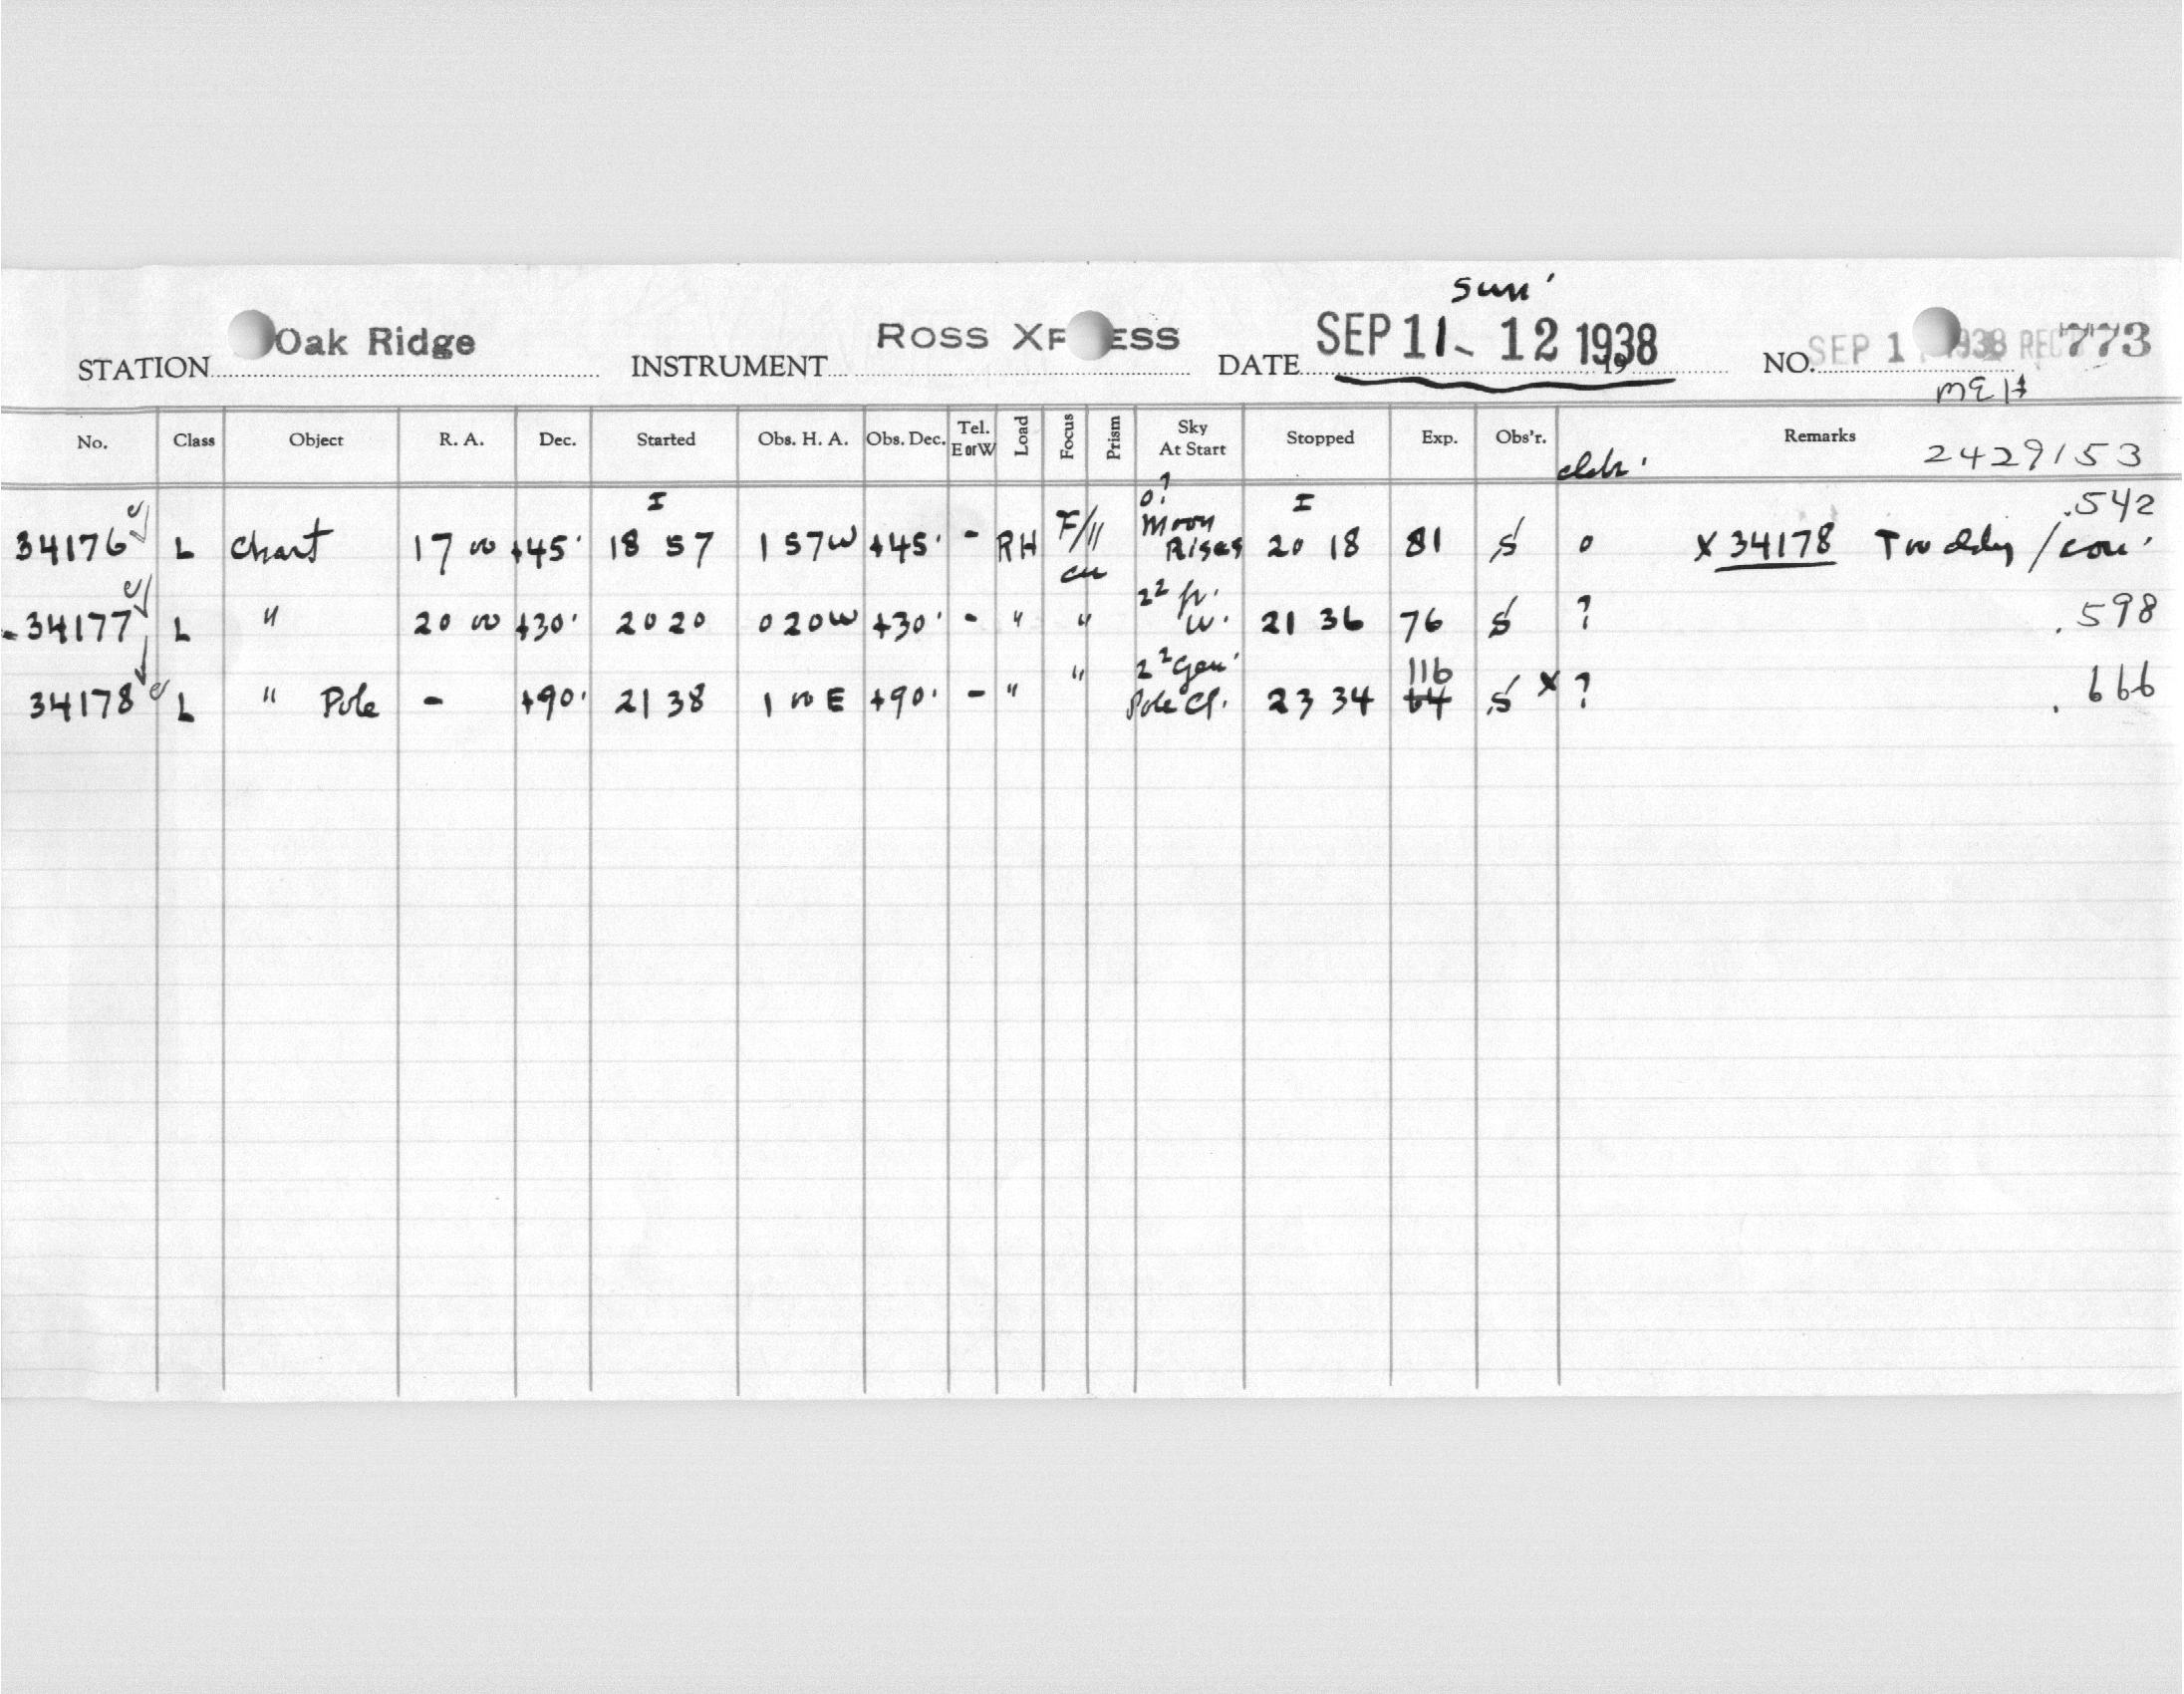 Sun'
STATION Oak Ridge INSTRUMENT ROSS XPRESS DATE SEP 11-12 1938 19 NO. SEP 1 1938 REC'D 773
MEH
No. Class Object R. A. Dec. Started Obs. H. A. Obs. Dec. Tel. E or W Load Focus Prism Sky At Start Stopped Exp. Obs'r. Remarks 2429153
I o? I .542
34176 L Chart 17 00 +45° 18 57 1 57W +45° - RH F/11 Moon Rises 20 18 81 S 0 X 34178
34177 L " 20 00 +30° 20 20 0 20W +30° - " " 2² W. 21 36 76 S ? .598
34178 L " Pole - +90° 21 38 1 00 E +90° - " " 2² Gen' Pole Cl. 23 34 116 64 S X ? .666